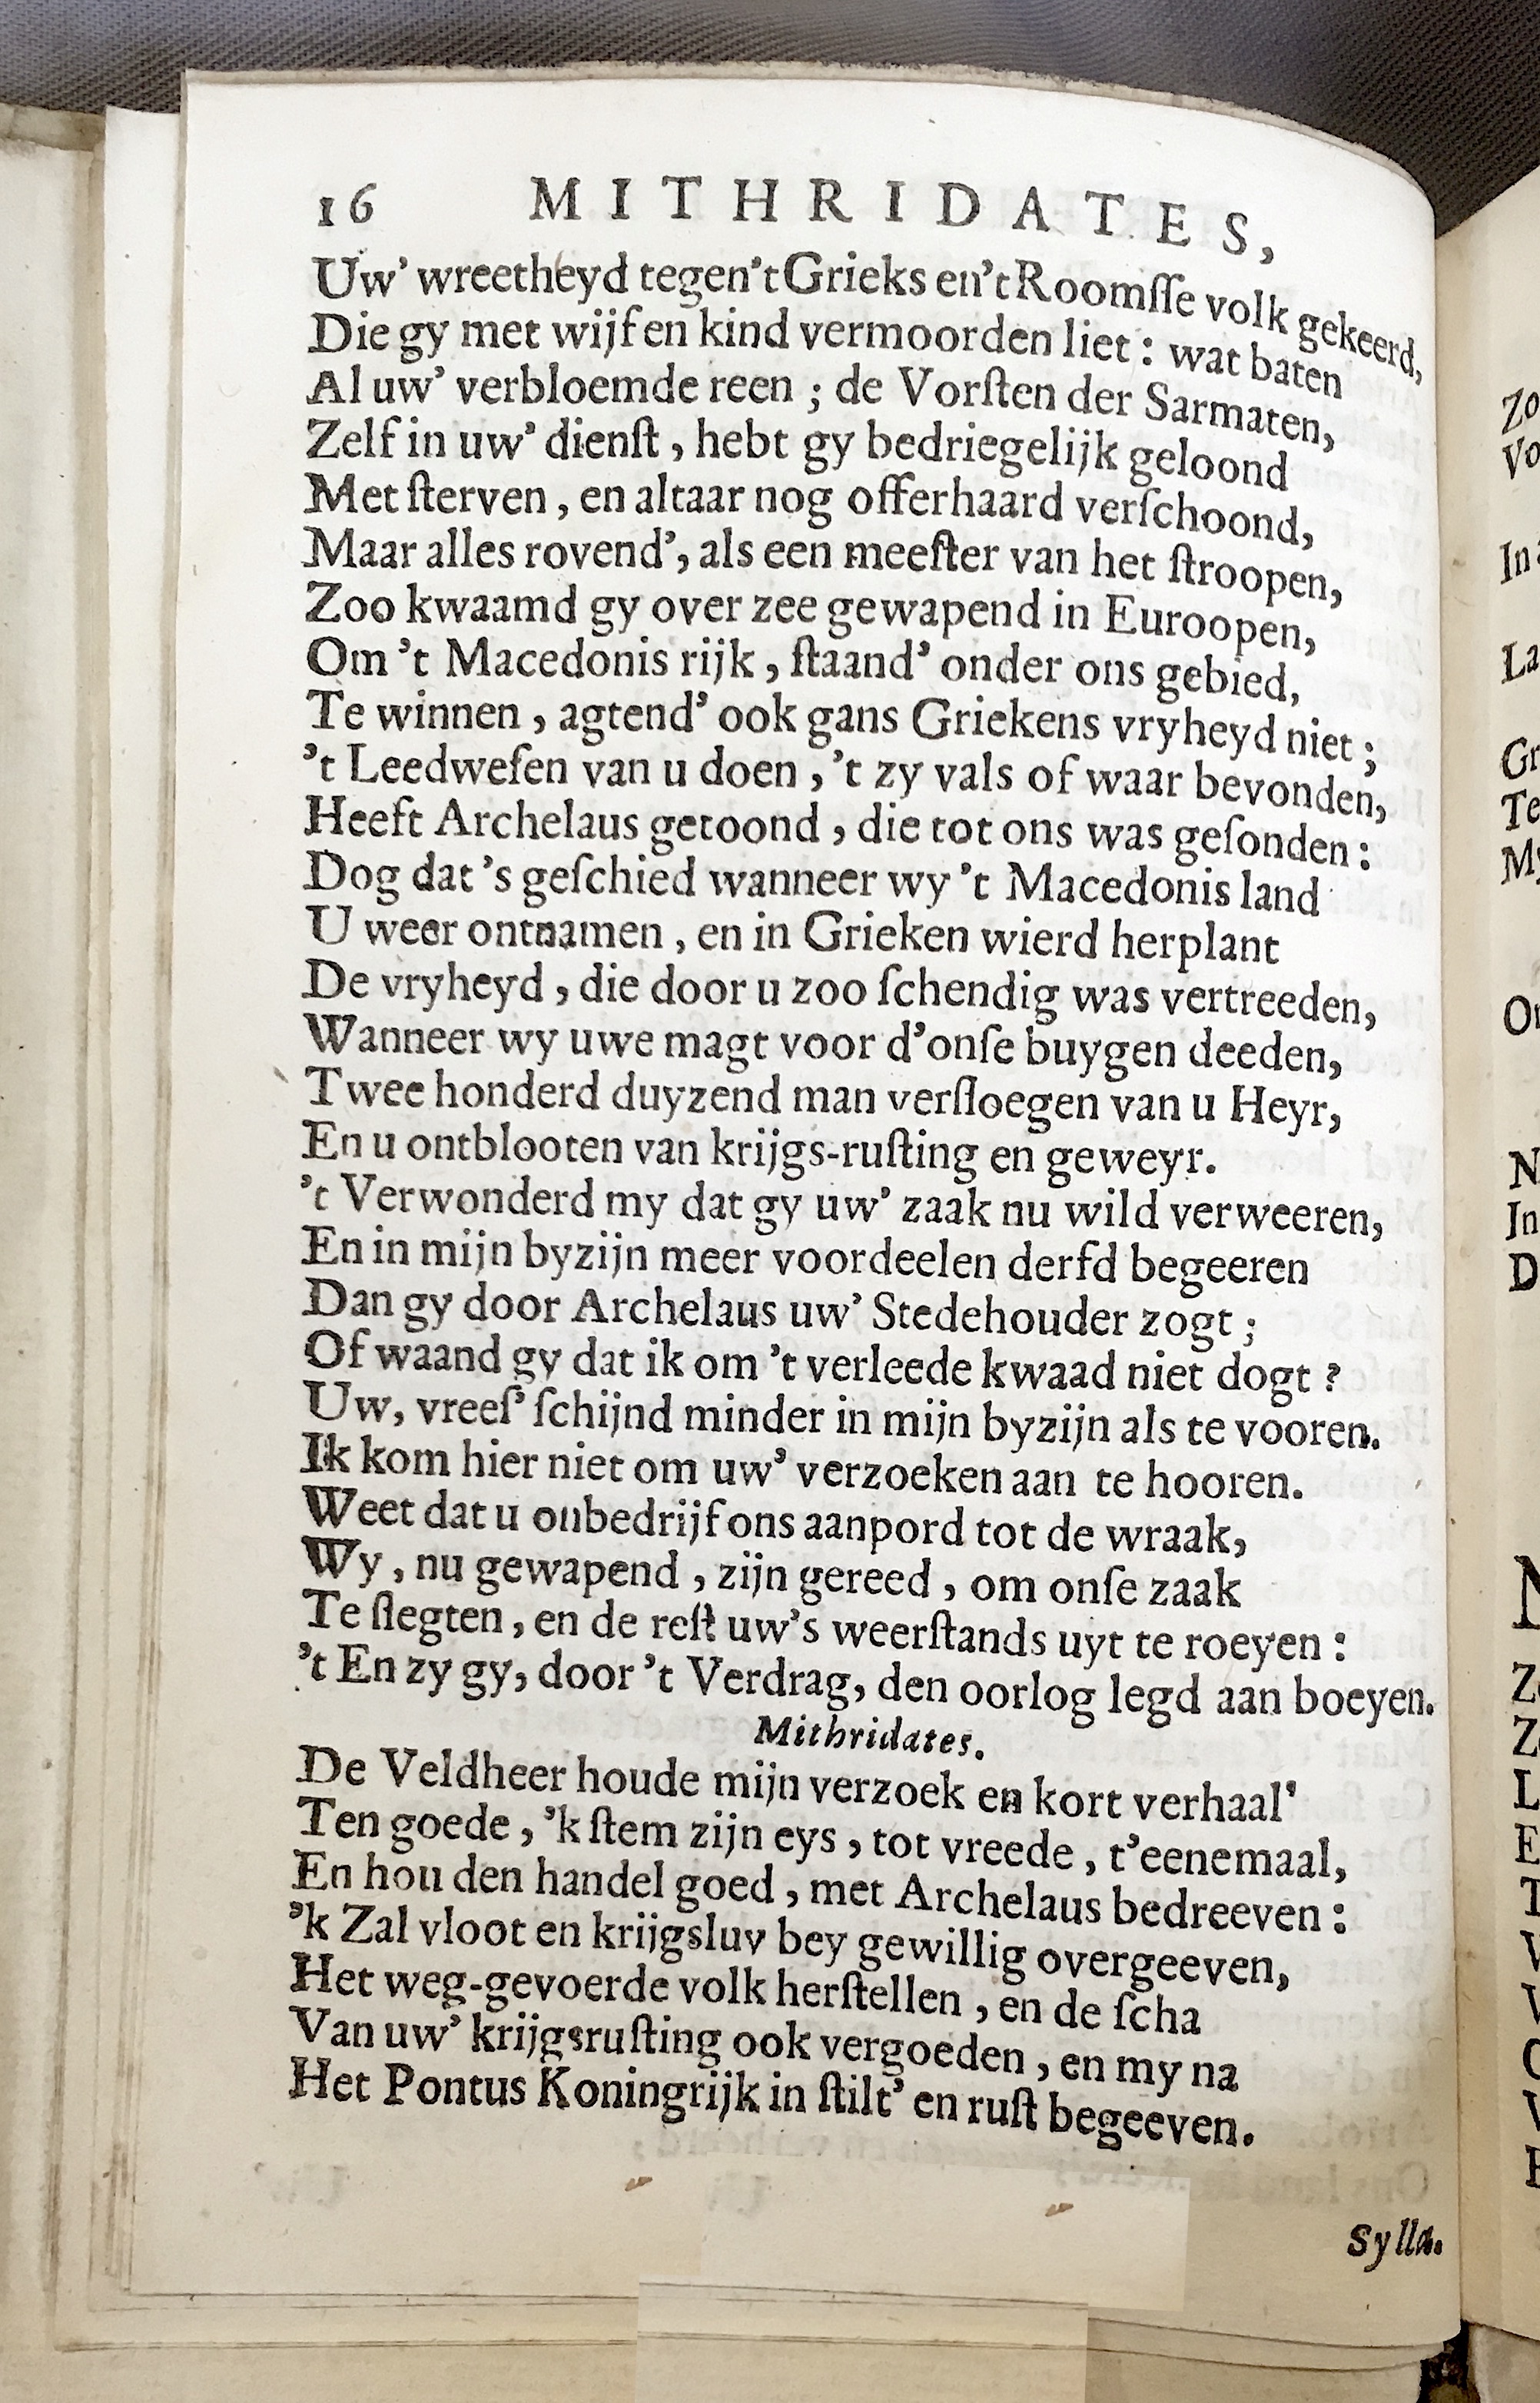 16 MITHRIDATES,
Uw' wreetheyd tegen't Grieks en't Roomſſe volk gekeerd,
Die gy met wijf en kind vermoorden liet: wat baten
Al uw' verbloemde reen; de Vorſten der Sarmaten,
Zelf in uw' dienſt, hebt gy bedriegelijk geloond
Met ſterven, en altaar nog offerhaard verſchoond,
Maar alles rovend', als een meeſter van het ſtroopen,
Zoo kwaamd gy over zee gewapend in Euroopen,
Om 't Macedonis rijk, ſtaand' onder ons gebied,
Te winnen, agtend' ook gans Griekens vryheyd niet;
't Leedweſen van u doen, 't zy vals of waar bevonden,
Heeft Archelaus getoond, die tot ons was geſonden:
Dog dat 's geſchied wanneer wy 't Macedonis land
U weer ontnamen, en in Grieken wierd herplant
De vryheyd, die door u zoo ſchendig was vertreeden,
Wanneer wy uwe magt voor d'onſe buygen deeden,
Twee honderd duyzend man verſloegen van u Heyr,
En u ontblooten van krijgs-ruſting en geweyr.
't Verwonderd my dat gy uw' zaak nu wild verweeren,
En in mijn byzijn meer voordeelen derfd begeeren
Dan gy door Archelaus uw' Stedehouder zogt;
Of waand gy dat ik om 't verleede kwaad niet dogt?
Uw, vreeſ' ſchijnd minder in mijn byzijn als te vooren.
Ik kom hier niet om uw' verzoeken aan te hooren.
Weet dat u onbedrijf ons aanpord tot de wraak,
Wy, nu gewapend, zijn gereed, om onſe zaak
Te ſlegten, en de reſt uw's weerſtands uyt te roeyen:
't En zy gy, door 't Verdrag, den oorlog legd aan boeyen.
Mithridates.
De Veldheer houde mijn verzoek en kort verhaal'
Ten goede, 'k ſtem zijn eys, tot vreede, t'eenemaal,
En hou den handel goed, met Archelaus bedreeven:
'k Zal vloot en krijgsluy bey gewillig overgeeven,
Het weg-gevoerde volk herſtellen, en de ſcha
Van uw' krijgsruſting ook vergoeden, en my na
Het Pontus Koningrijk in ſtilt' en ruſt begeeven.
Sylla.
Zo
Vo
In
La
Gr
Te
My
On
N
In
D
N
Z
Z
L
E
T
V
V
V